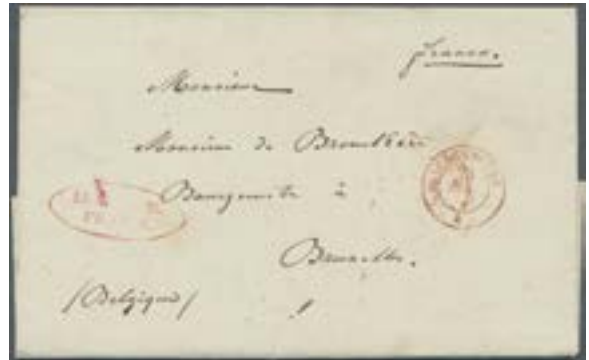 franco.
Monsieur
Monsieur de Brouckère
Bourgmestre à
Bruxelles.
/Belgique/